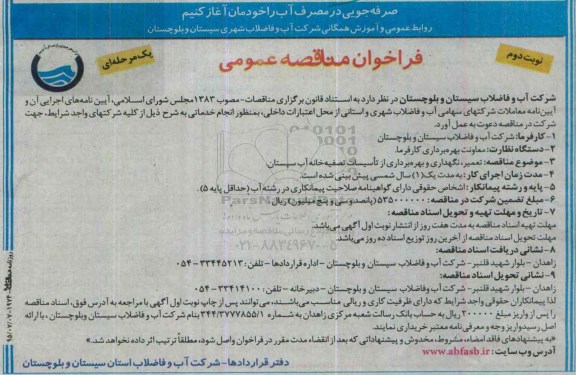 صرفه‌جویی در مصرف آب را خودمان آغاز کنیم
روابط عمومی و آموزش همگانی شرکت آب و فاضلاب شهری سیستان و بلوچستان
نوبت دوم
فراخوان مناقصه عمومی
یک مرحله‌ای
شرکت آب و فاضلاب سیستان و بلوچستان در نظر دارد به استناد قانون برگزاری مناقصات-مصوب ۱۳۸۳مجلس شورای اسلامی، آیین نامه‌های اجرایی آن و
آیین‌نامه معاملات شرکتهای سهامی آب و فاضلاب شهری و استانی از محل اعتبارات داخلی، به‌منظور انجام خدماتی به شرح ذیل از کلیه شرکتهای واجد شرایط، جهت
شرکت در مناقصه دعوت به عمل آورد.
۱-کارفرما: شرکت آب و فاضلاب سیستان و بلوچستان
۲-دستگاه نظارت: معاونت بهره‌برداری کارفرما.
۳-موضوع مناقصه: تعمیر، نگهداری و بهره‌برداری از تأسیسات تصفیه‌خانه آب سیستان
۴-مدت زمان اجرای کار: به مدت یک(۱) سال شمسی پیش بینی شده است.
۵-پایه و رشته پیمانکار: اشخاص حقوقی دارای گواهینامه صلاحیت پیمانکاری در رشته آب (حداقل پایه ۵).
۶-مبلغ تضمین شرکت در مناقصه: ۵۳۵۰۰۰۰۰۰ (پانصد و سی و پنج میلیون) ریال
۷-تاریخ و مهلت تهیه و تحویل اسناد مناقصه:
مهلت تهیه اسناد مناقصه به مدت هفت روز از انتشار نوبت اول آگهی می‌باشد.
مهلت تحویل اسناد مناقصه از آخرین روز توزیع اسناد ده روز می‌باشد.
۸-نشانی دریافت اسناد مناقصه:
زاهدان - بلوار شهید قلنبر- شرکت آب و فاضلاب سیستان و بلوچستان - اداره قراردادها - تلفن: ۳۳۴۴۵۲۱۳-۰۵۴
۹-نشانی تحویل اسناد مناقصه:
زاهدان - بلوار شهید قلنبر - شرکت آب و فاضلاب سیستان و بلوچستان - دبیرخانه - تلفن: ۳۳۴۱۴۱۰۰-۰۵۴
لذا پیمانکاران حقوقی واجد شرایط که دارای ظرفیت کاری و ریالی مناسب می‌باشند، می‌توانند پس از چاپ نوبت اول آگهی با مراجعه به آدرس فوق، اسناد مناقصه
را پس از واریز مبلغ ۲۰۰۰۰۰ ریال به حساب بانک رسالت شعبه مرکزی زاهدان به شماره ۳۴۴/۳۷۷۷۸۵۵/۱ بنام شرکت آب و فاضلاب سیستان و بلوچستان، با ارائه
اصل رسید واریز وجه و معرفی‌نامه معتبر خریداری نمایند.
«به پیشنهادهای فاقد امضاء، مشروط، مخدوش و پیشنهاداتی که بعد از انقضاء مدت مقرر در فراخوان واصل شود، مطلقاً ترتیب اثر داده نخواهد شد.»
آدرس وب سایت: www.abfasb.ir
دفتر قراردادها-شرکت آب و فاضلاب استان سیستان و بلوچستان
۰۲۱-۸۸۳۴۹۶۷۰-۵